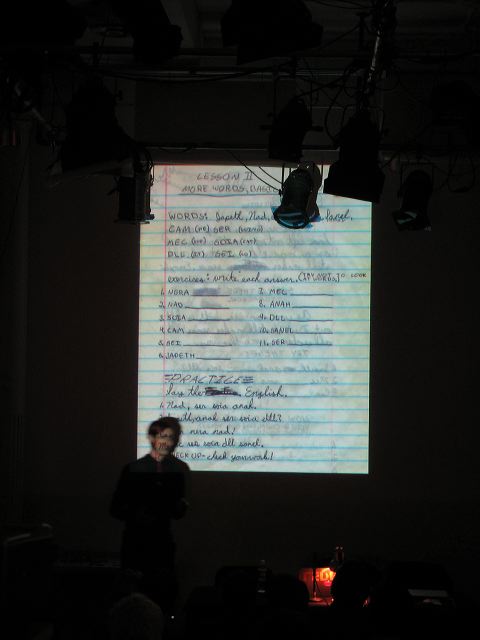 LESSON II
MORE WORDS, BASIC
WORDS: Japeth, Nad,
CAM (HE) SER
MEC GOIA
DLL SEI
exercises: write each answer. (TRY NOT TO LOOK AT WORDS)
1. NERA 7. MEC
2. NAD 8. ANAH
3. SOIA 9. DLL
4. CAM 10. SANEL
5. SEI 11. SER
6. JAPETH
PRACTICE
Say the English.
1. Nad, ser soia anah.
anah ser soia dll?
nera nad!
ser soia dll sanel.
CHECK UP-check your work!